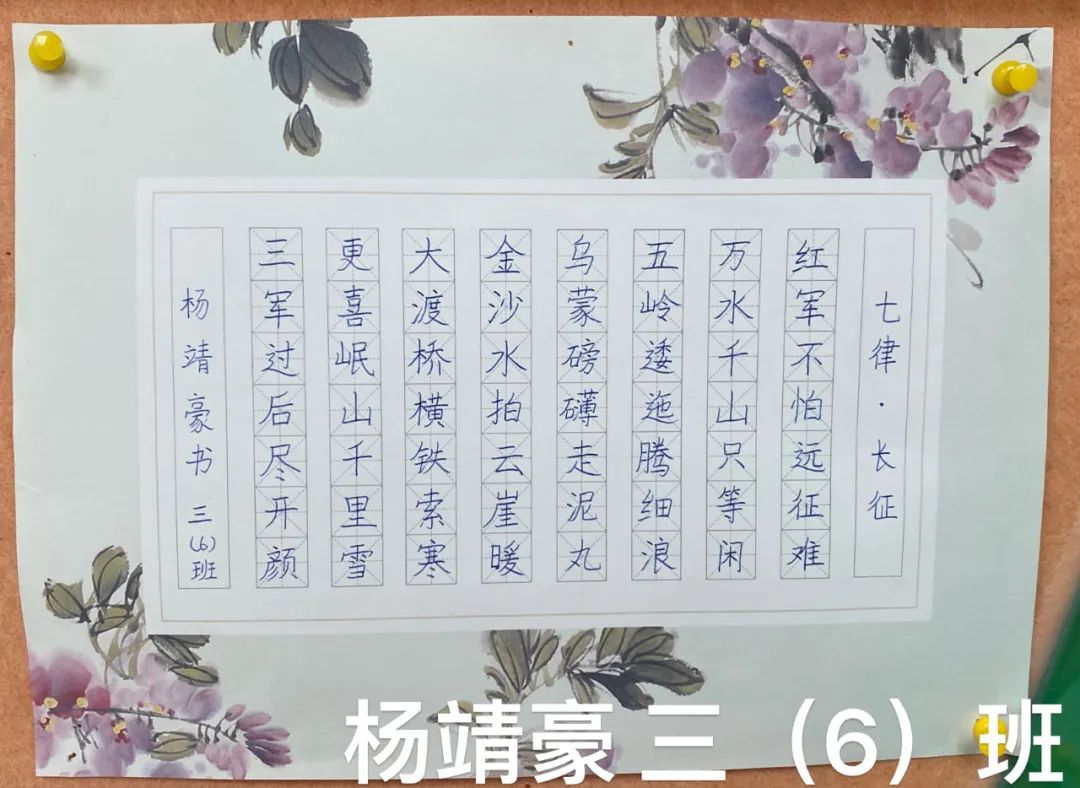 七律·长征
红军不怕远征难
万水千山只等闲
五岭逶迤腾细浪
乌蒙磅礴走泥丸
金沙水拍云崖暖
大渡桥横铁索寒
更喜岷山千里雪
三军过后尽开颜
杨靖豪书 三(6)班
杨靖豪 三（6）班